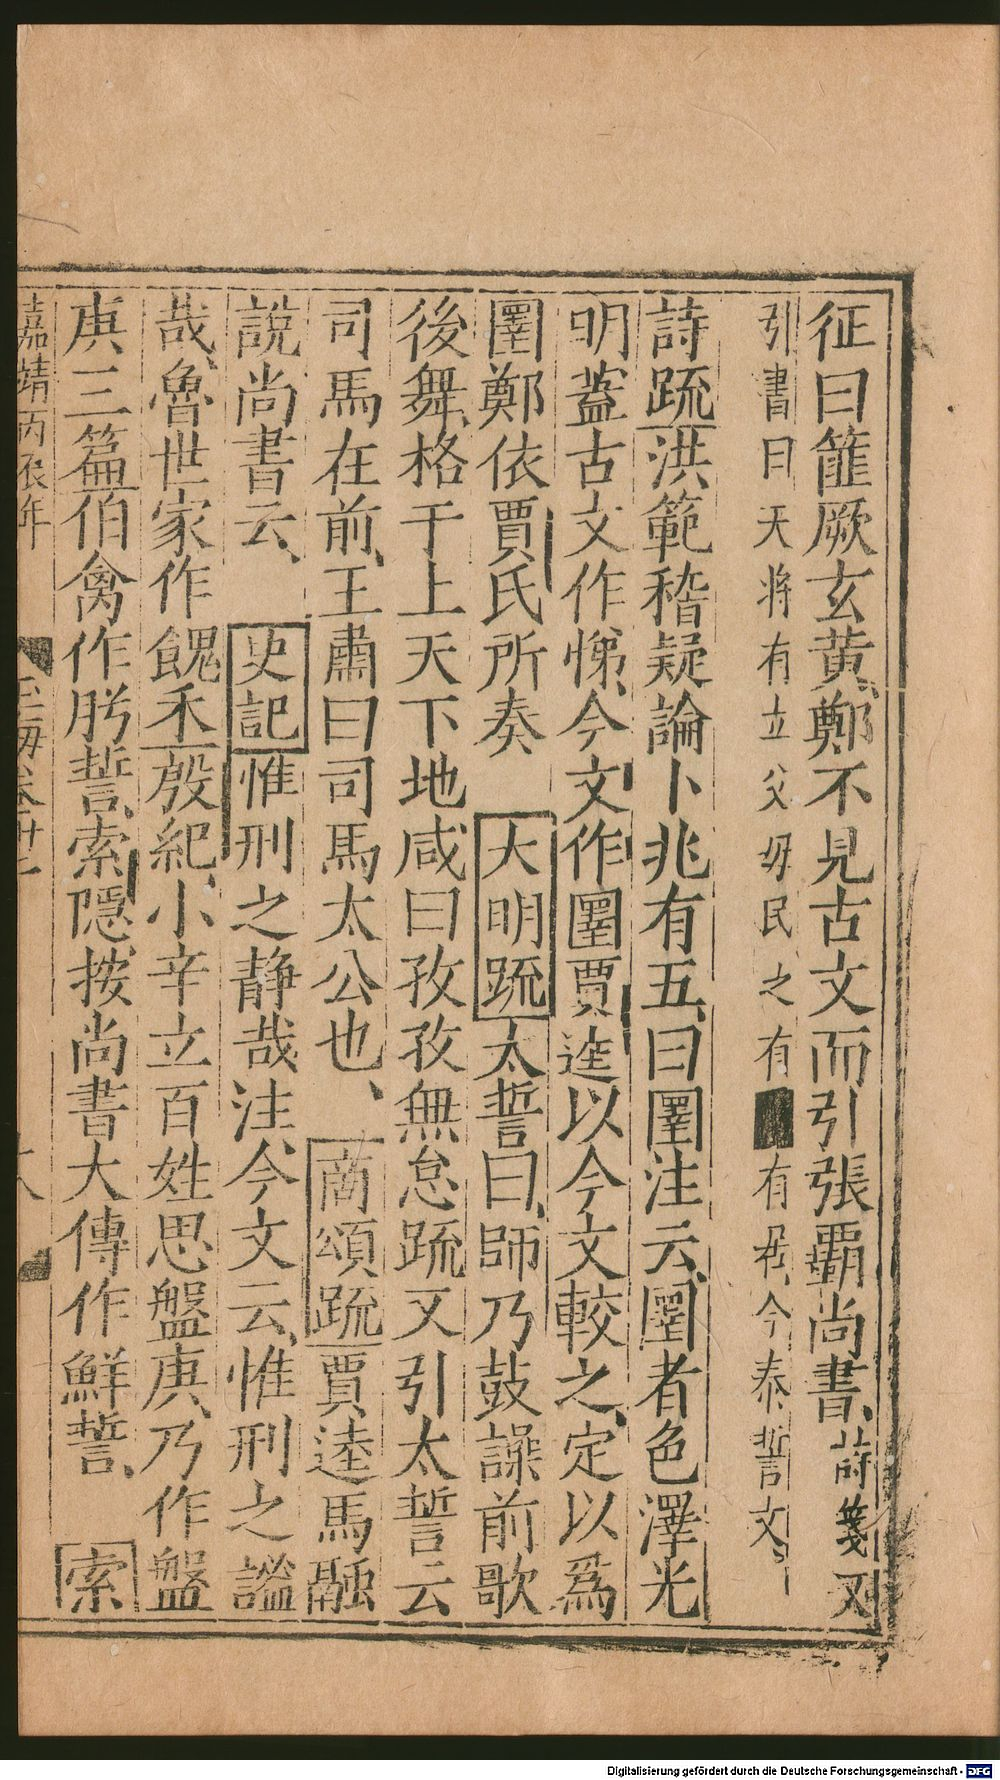 征曰篚厥玄黃鄭不見古文而引張霸尚書詩箋又
引書曰天将有立父母民之有有居今泰誓文
詩疏洪範稽疑論卜兆有五曰圛注云圛者色澤光
明蓋古文作悌今文作圛賈逵以今文較之定以為
圛鄭依賈氏所奏大明疏太誓曰師乃鼓譟前歌
後舞格于上天下地咸曰孜孜無怠疏又引太誓云
司馬在前王肅曰司馬太公也商頌疏賈逵馬融
說尚書云史記惟刑之静哉注今文云惟刑之謐
哉魯世家作餽禾殷紀小辛立百姓思盤庚乃作盤
庚三篇伯禽作肹誓索隱按尚書大傳作鮮誓索
嘉靖丙辰年
玉海卷卅七
Digitalisierung gefördert durch die Deutsche Forschungsgemeinschaft - DFG